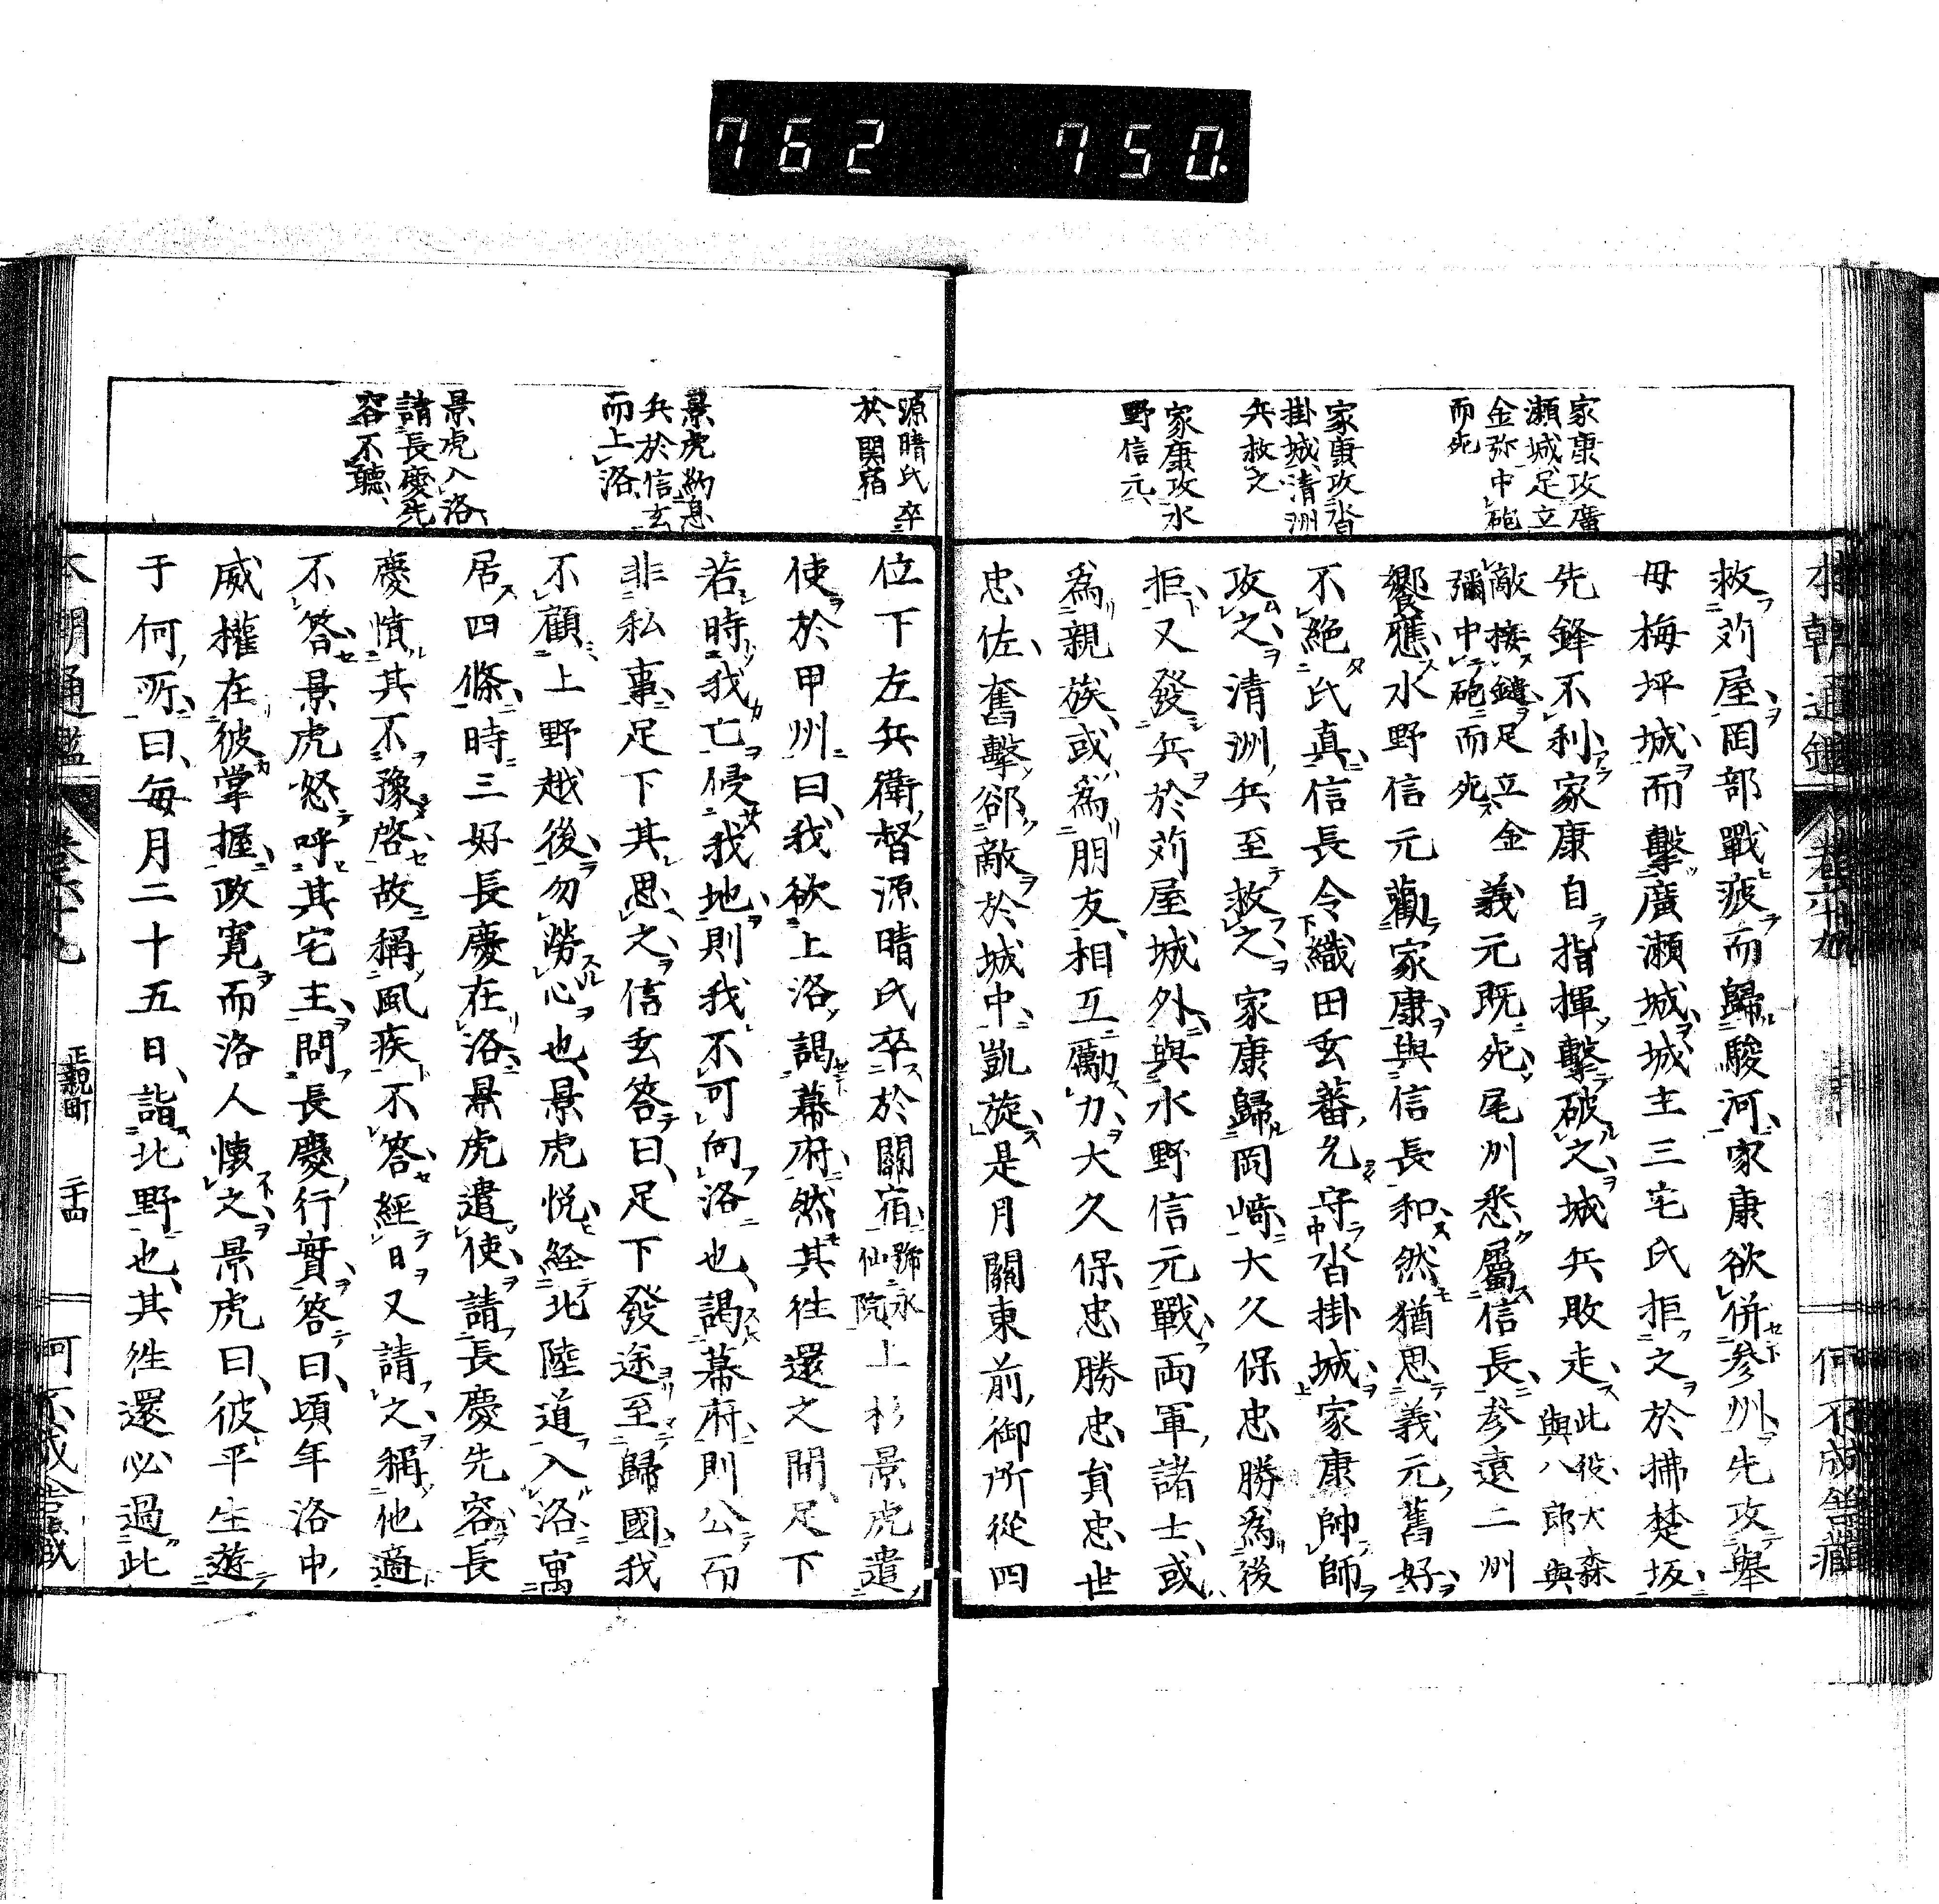 762 750
家康攻廣
瀬城足立
金弥中砲
而死
家康攻沓
掛城清洲
兵救之
家康攻水
野信元
救苅屋岡部戰疲而歸駿河家康欲併参州先攻舉
母梅坪城而擊廣瀬城城主三宅氏拒之於拂楚坂
先鋒不利家康自指揮擊破之城兵敗走此役大森與八郎與
敵接鎗足立金彌中砲而死義元既死尾州悉屬信長参遠二州
響應水野信元勸家康與信長和然猶思義元舊好
不絶氏真信長令織田玄蕃允守沓掛城家康帥師
攻之清洲兵至救之家康歸岡﨑大久保忠勝為後
拒又發兵於苅屋城外與水野信元戰両軍諸士或
為親族或為朋友相互勵力大久保忠勝忠員忠世
忠佐奮擊郤敵於城中凱旋是月關東前御所從四
源晴氏卒
於関宿
景虎納息
兵於信玄
而上洛
景虎入洛
請長慶先
容不聽
位下左兵衛督源晴氏卒於關宿號永仙院上杉景虎遣
使於甲州曰我欲上洛謁幕府然其徃還之間足下
若時我亡侵我地則我不可向洛也謁幕府則公而
非私事足下其思之信玄答曰足下發途至歸國我
不顧上野越後勿勞心也景虎悦経北陸道入洛寓
居四條時三好長慶在洛景虎遣使請長慶先容長
慶憤其不豫啓故稱風疾不答經日又請之稱他適
不答景虎怒呼其宅主問長慶行實答曰頃年洛中
威權在彼掌握政寛而洛人懐之景虎曰彼平生遊
于何所曰每月二十五日詣北野也其徃還必過此
本朝通鑑 正親町 二十四